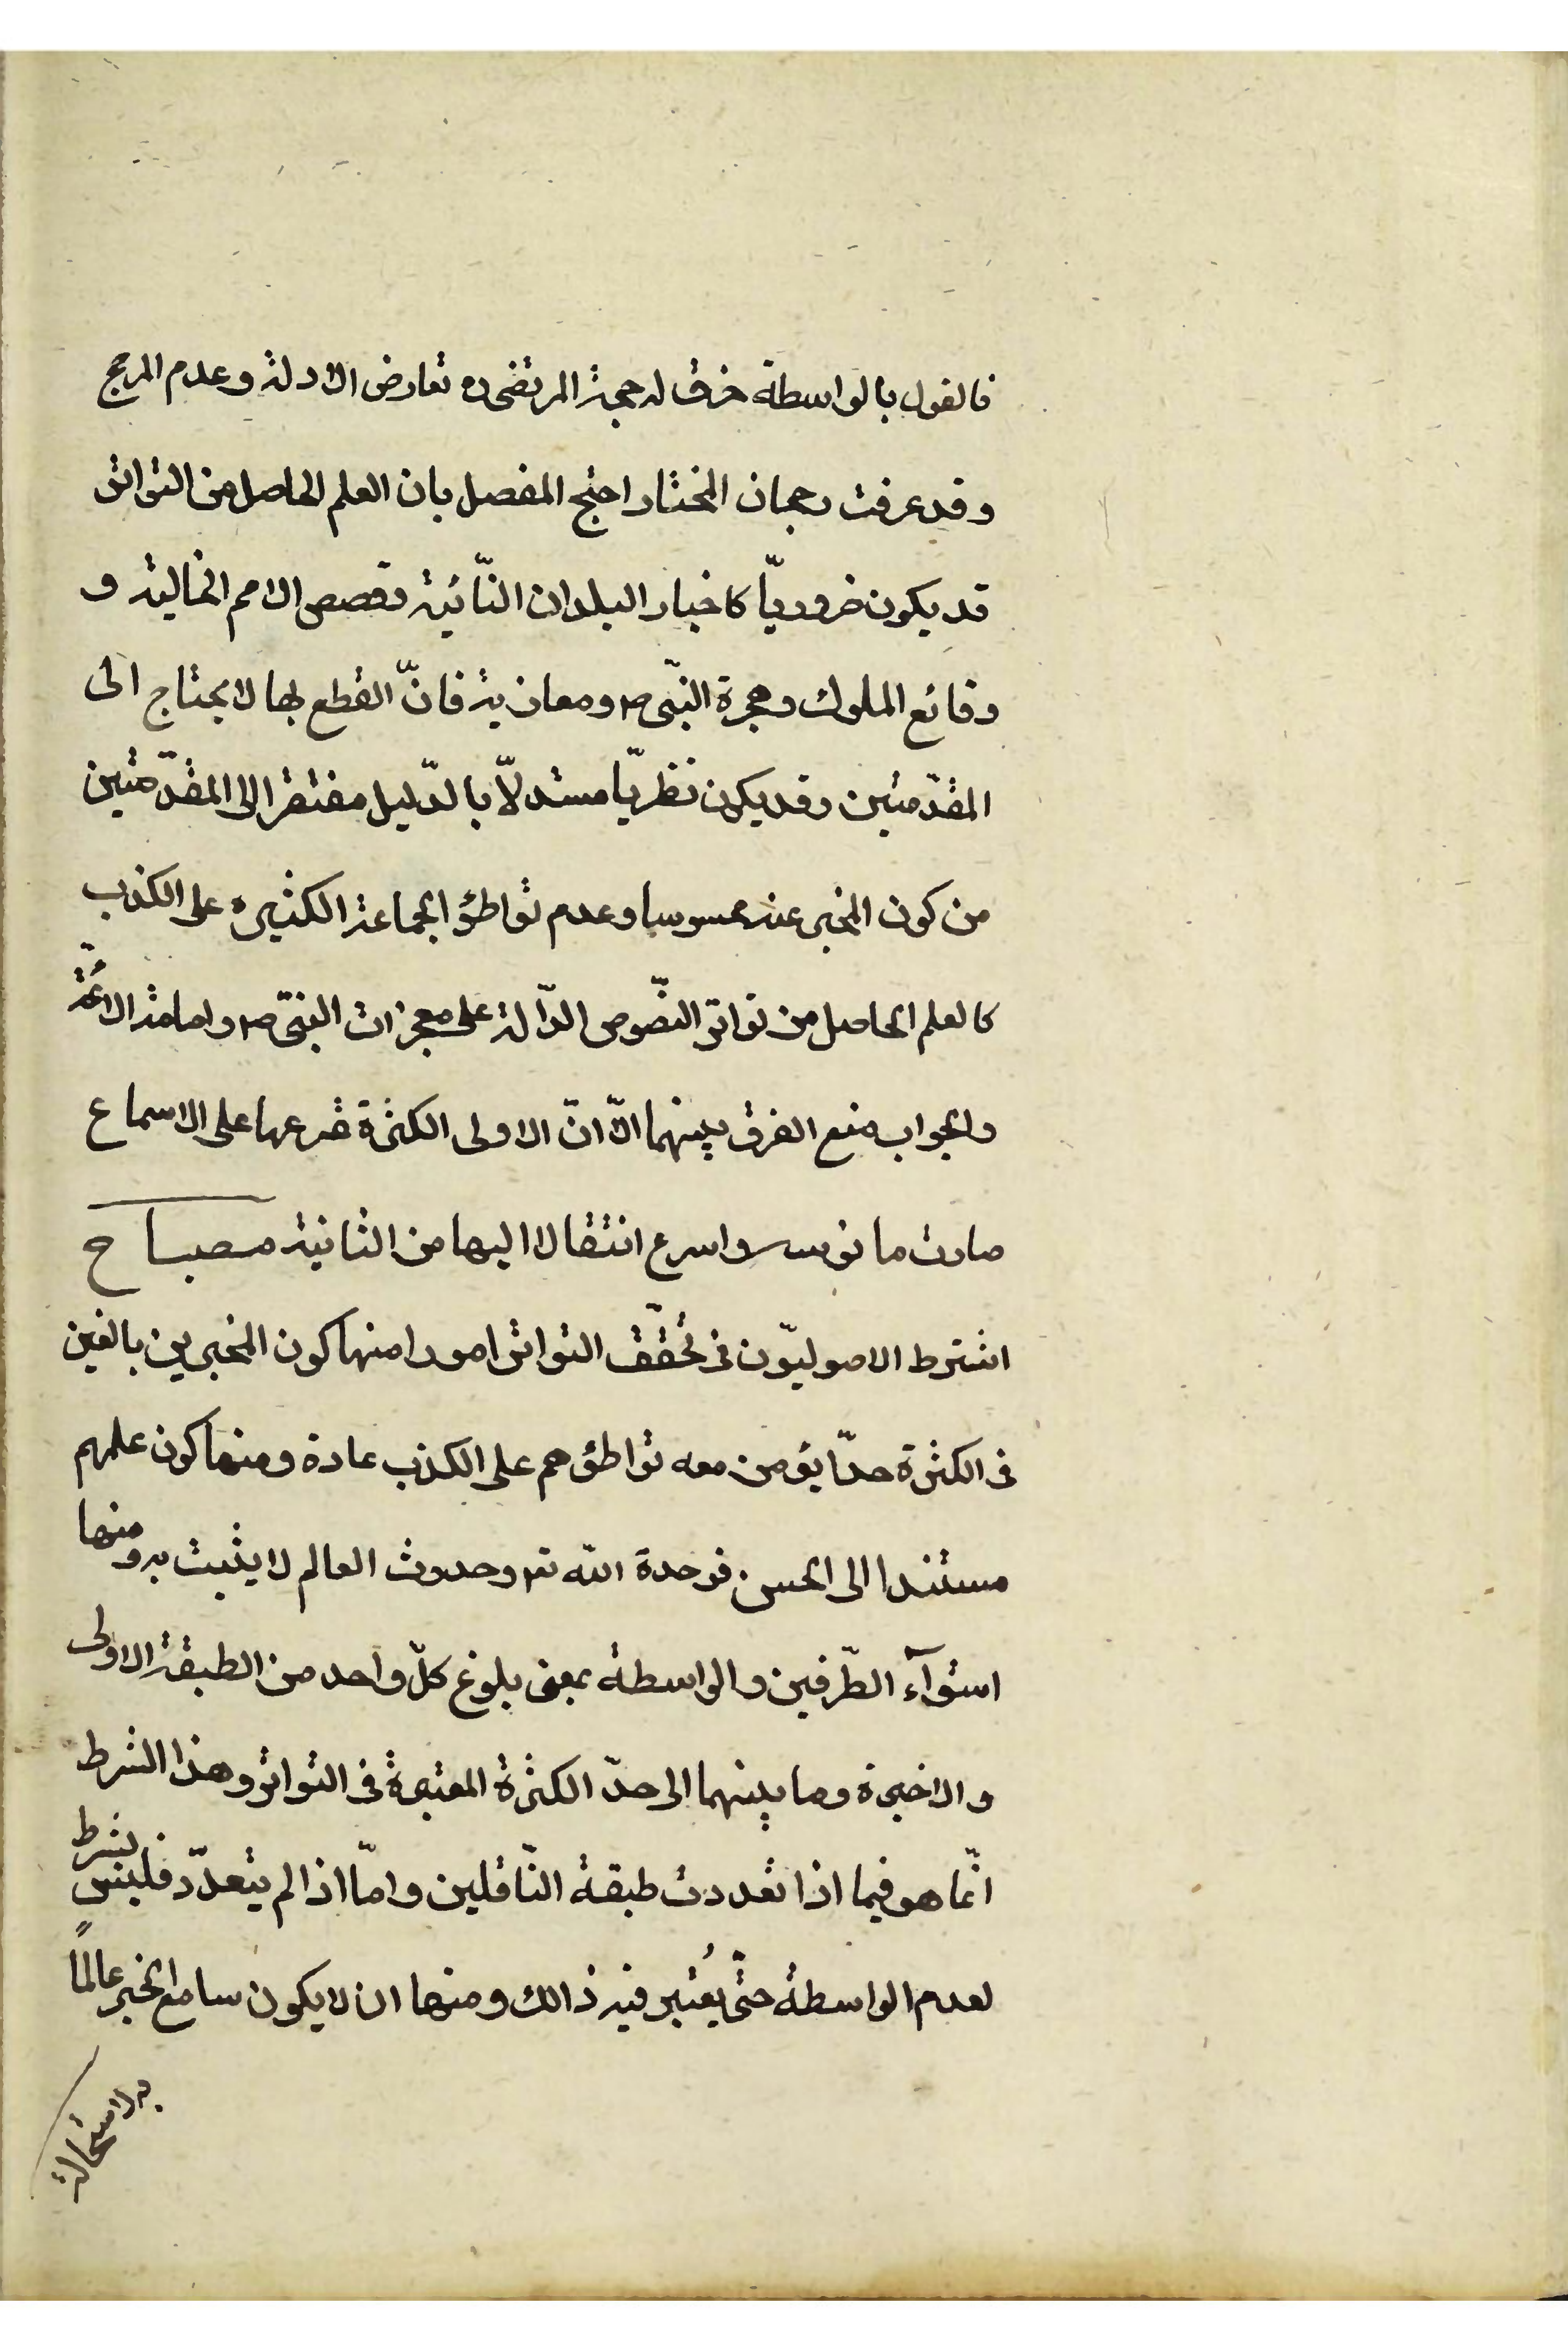 فالقول بالواسطة خرق له حجة المرتضى ره تعارض الادلة وعدم المرجح
وقد عرفت رجحان المختار احتج المفصل بان العلم الحاصل من التواتر
قد يكون ضروريّا كاخبار البلدان النّائية وقصص الامم الخالية و
وقائع الملوك وهجرة النبّى ص ومغازيه فانّ القطع بها لا يحتاج الى
المقدّمتين وقد يكون نظريّا مستدلّا بالدّليل مفتقر الى المقدّمتين
من كون المخبر عنه محسوسا وعدم تواطؤ الجماعة الكثيرة على الكذب
كالعلم الحاصل من تواتر النصّوص الدّالة على معجزات النبىّ ص وامامة الائمّة
والجواب منع الفرق بينهما الّا انّ الاولى الكثرة قرعها على الاسماع
صارت مانوسة واسرع انتقالا اليها من الثانية مصباح
اشترط الاصوليّون فى تحقّق التواتر امورا منها كون المخبرين بالغين
فى الكثرة حدّا يؤمن معه تواطؤهم على الكذب عادة ومنها كون علمهم
مستندا الى الحس فوحدة الله تع وحدوث العالم لا يثبت به ومنها
استوآء الطّرفين والواسطة بمعنى بلوغ كلّ واحد من الطبقة الاولى
والاخيرة وما بينهما الى حدّ الكثرة المعتبرة فى التواتر وهذا الشرط
انّما هو فيما اذا تعددت طبقة النّاقلين وامّا اذا لم يتعدّد فليس بشرط
لعدم الواسطة حتّى يُعتبر فيه ذالك ومنها ان لا يكون سامع الخبر عالمًا
به لاستحالة